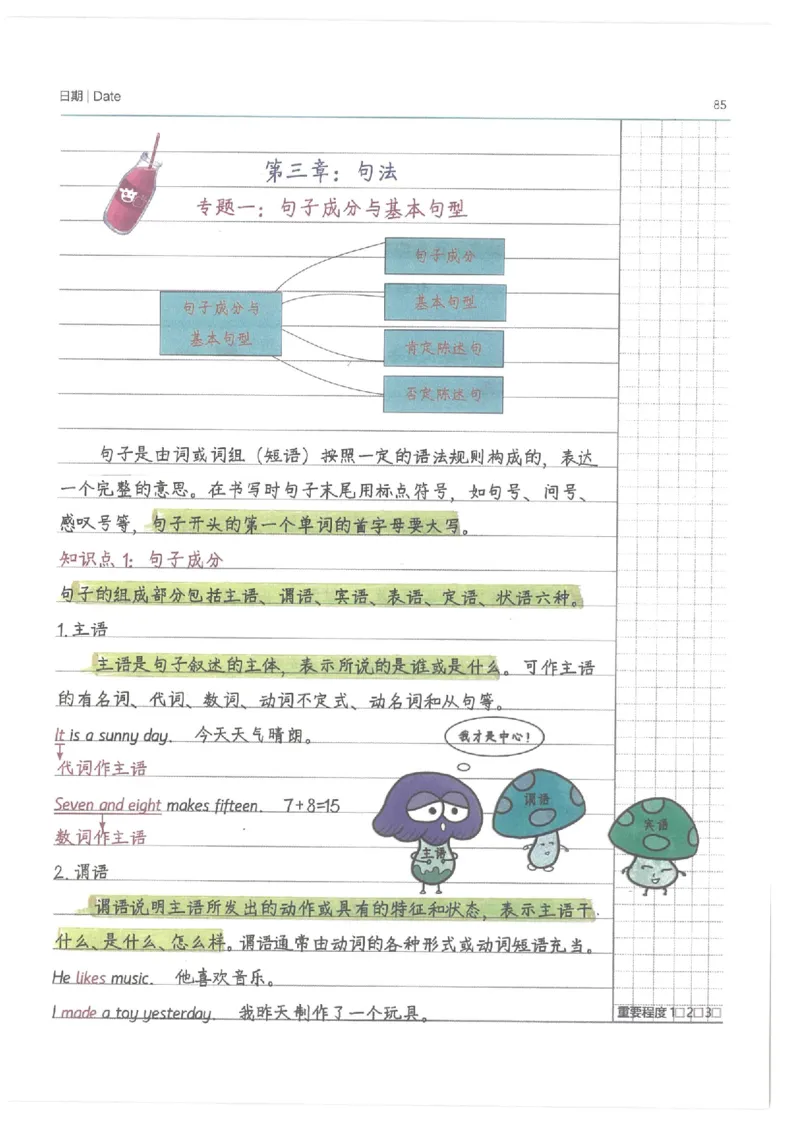 日期 | Date
85
第三章：句法
专题一：句子成分与基本句型
句子成分与
基本句型
句子成分
基本句型
肯定陈述句
否定陈述句
句子是由词或词组（短语）按照一定的语法规则构成的，表达
一个完整的意思。在书写时句子末尾用标点符号，如句号、问号、
感叹号等，句子开头的第一个单词的首字母要大写。
知识点1：句子成分
句子的组成部分包括主语、谓语、宾语、表语、定语、状语六种。
1.主语
主语是句子叙述的主体，表示所说的是谁或是什么。可作主语
的有名词、代词、数词、动词不定式、动名词和从句等。
It is a sunny day. 今天天气晴朗。
我才是中心！
代词作主语
Seven and eight makes fifteen. 7+8=15
数词作主语
主语
谓语
宾语
2.谓语
谓语说明主语所发出的动作或具有的特征和状态，表示主语干
什么、是什么、怎么样。谓语通常由动词的各种形式或动词短语充当。
He likes music. 他喜欢音乐。
I made a toy yesterday. 我昨天制作了一个玩具。
重要程度 1□2□3□